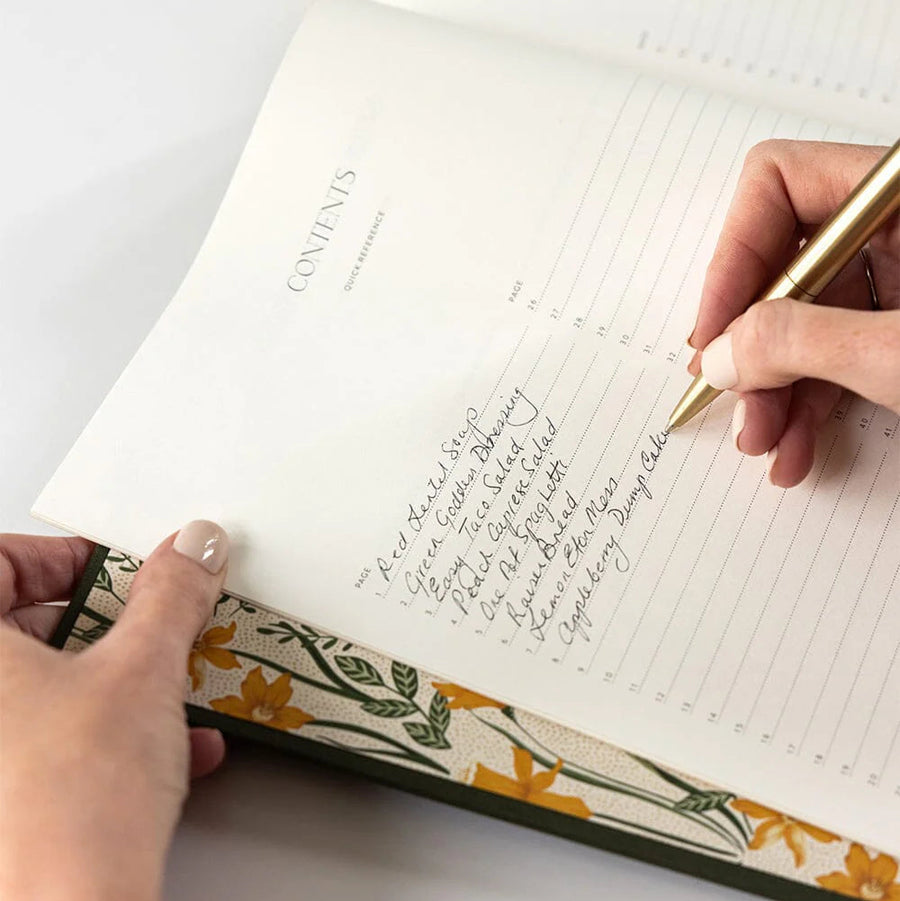 CONTENTS
QUICK REFERENCE
PAGE
1 Red Lentil Soup
2 Green Goddess Dressing
3 Easy Taco Salad
4 Peach Caprese Salad
5 One Pot Spaghetti
6 Bread
7 Lemon Eton Mess
8 Appleberry Dump Cake
9
10
11
12
13
14
15
16
17
18
19
20
PAGE
26
27
28
29
30
31
32
39
40
41